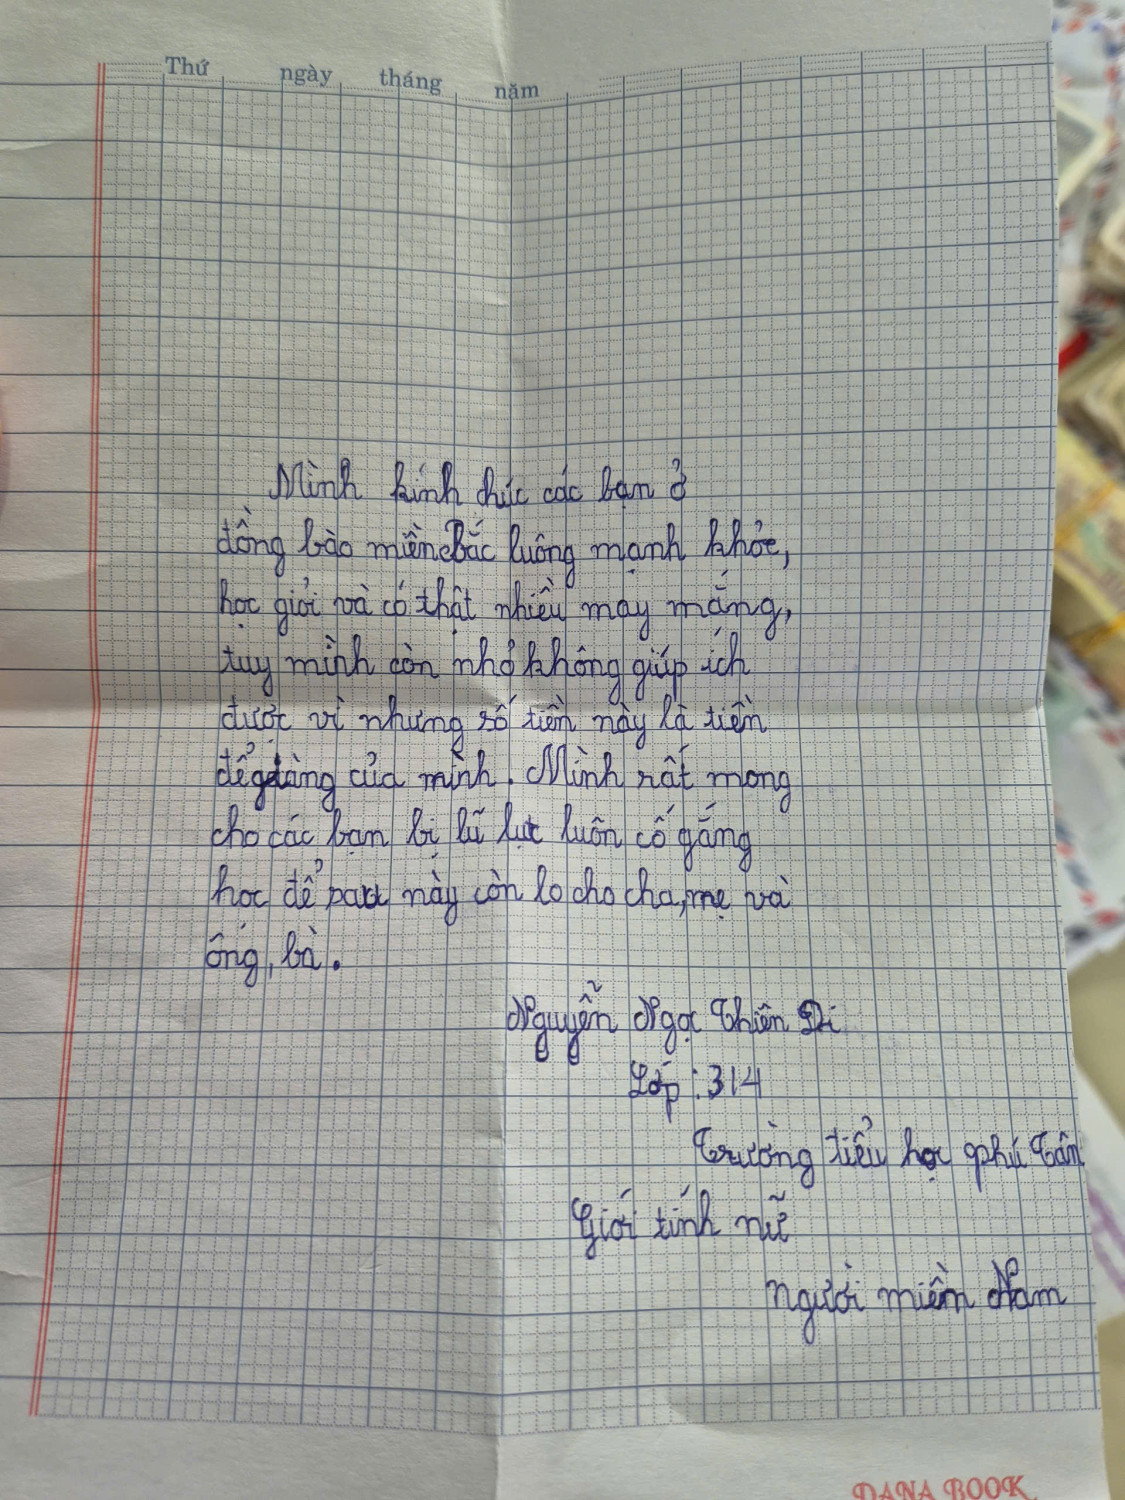 Thứ ngày tháng năm
Mình kính chúc các bạn ở
đồng bào miền Bắc luông mạnh khỏe,
học giỏi và có thật nhiều may mắng,
tuy mình còn nhỏ không giúp ích
được vì nhưng số tiền này là tiền
để gdàng của mình. Mình rất mong
cho các bạn bị lũ lụt luôn cố gắng
học để này còn lo cho cha, mẹ và
ông, bà.
Nguyễn Ngọc Thiên Di
Lớp : 314
Trường tiểu học phú Tân
Giới tính nữ
người miền Nam
DANA BOOK